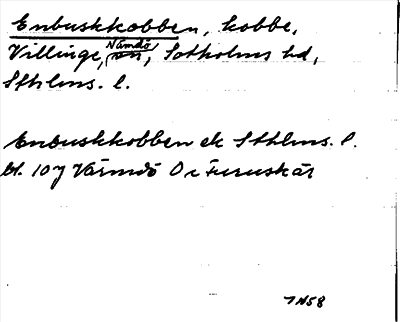 Enbuskkobben, kobbe,
Villinge, Nämdö, Sotholms hd,
Sthlms. l.
Enbuskkobben ek Sthlms. l.
bl. 107 Värmdö O i Furuskär